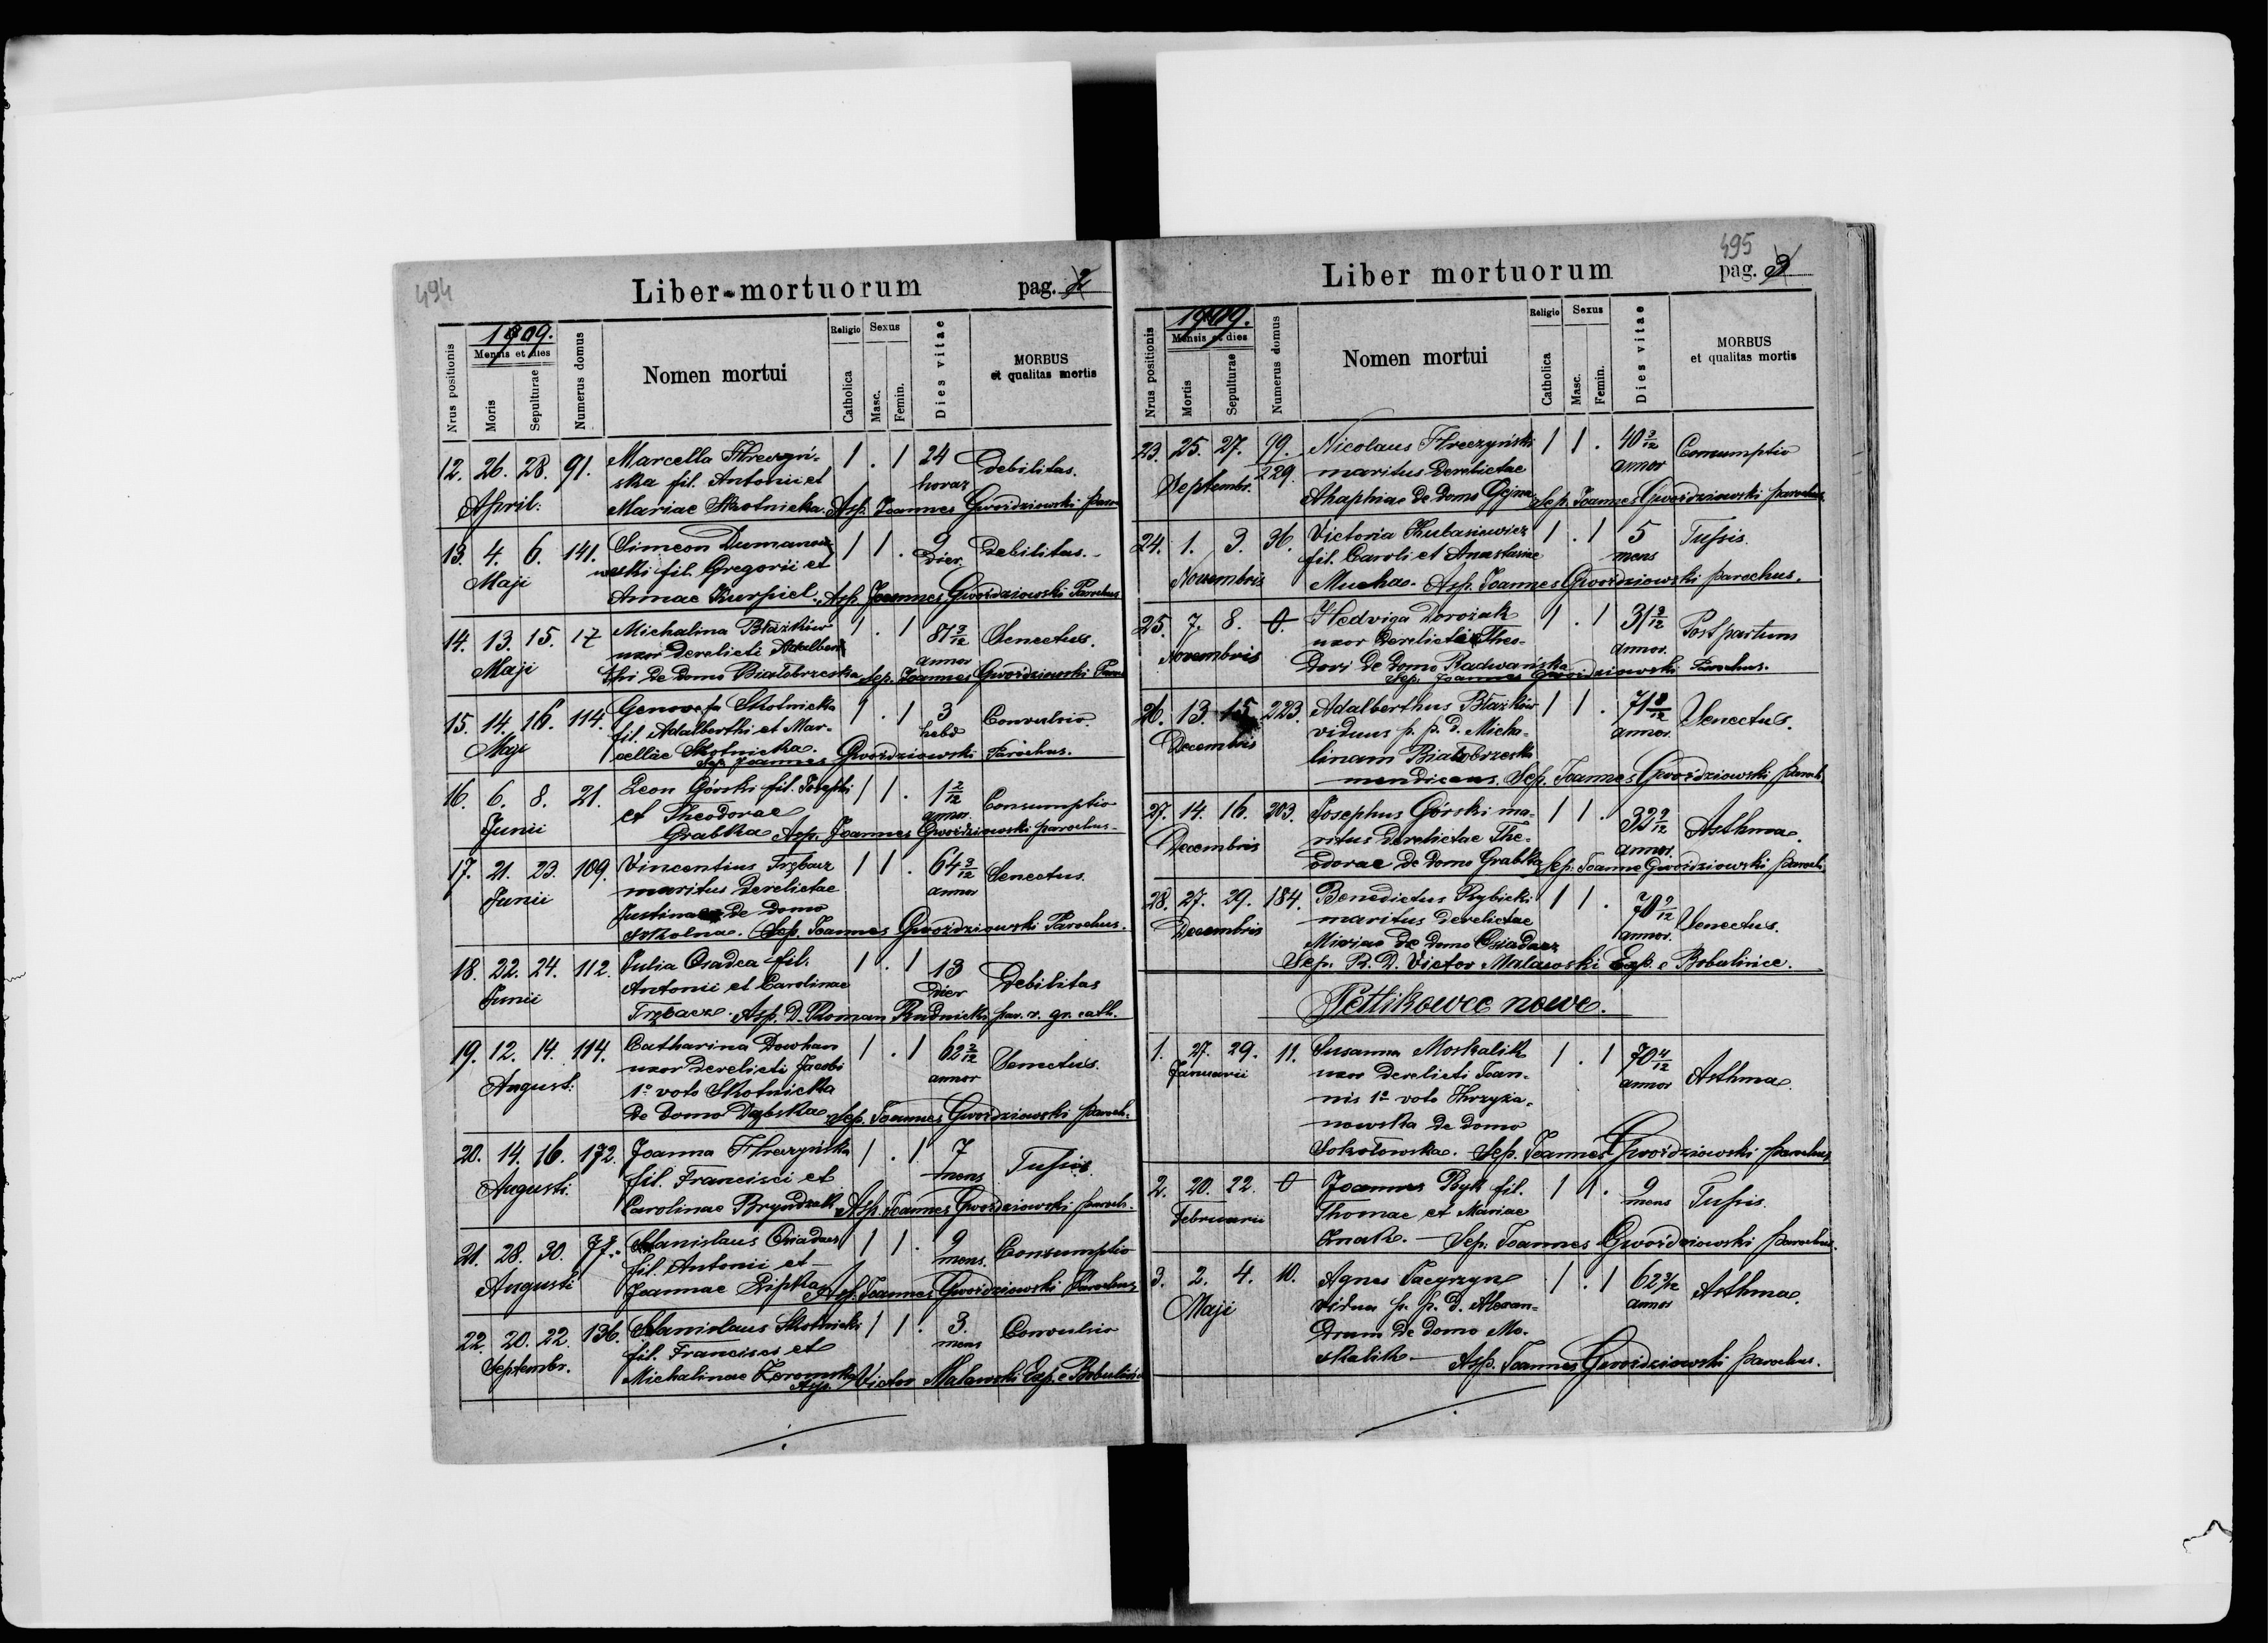 494
Liber mortuorum pag. 2
1909.
Nrus positionis
Mensis et dies
Moris
Sepulturae
Numerus domus
Nomen mortui
Religio
Catholica
Sexus
Masc.
Femin.
Dies vitae
MORBUS
et qualitas mortis
12. 26. 28. 91. Marcella Hreczyń- 1 . 1 24 Debilitas.
ska fil. Antonii et horar
April. Mariae Skotnicka. Asp. Joannes Gwoździowski
13. 4. 6. 141. Simeon 1 1 . 9 Debilitas.
Maji wski fil. Gregorii et dier
Annae Kurpiel. Asp. Joannes Gwoździowski Parochus
14. 13. 15. 17 Michalina Błażków 1 . 1 81 9/12 Senectus.
uxor derelicti Adalber annor
Maji thi de domo Białobrzeska Sep. Joannes Gwoździowski
15. 14. 16. 114. Genovefa Skotnicka 1 . 1 3 Convulsio.
fil. Adalberthi et Mar- hebd
Maji cellae Skotnicka.
Sep. Joannes Gwoździowski Parochus.
16. 6. 8. 21. Leon Górski fil. Josephi 1 1 . 1 2/12 Consumptio
Junii et Theodorae annor.
Grabka Asp. Joannes Gwoździowski parochus.
17. 21. 23. 109. Vincentius Trębacz 1 1 . 64 9/12 Senectus
Junii maritus derelictae annor
Justinae de domo
Sep. Joannes Gwoździowski Parochus.
18. 22. 24. 112. Julia Osadca fil. 1 . 1 13 Debilitas
Junii Antonii et Carolinae dier
Trębacz. Asp. D. Roman Rudnicki par. r. gr. cath.
19. 12. 14. 114. Catharina Dowhan 1 . 1 62 2/12 Senectus.
August. uxor derelicti Jacobi annor
1º voto Skotnicka
de domo Dąbska. Sep. Joannes Gwoździowski paroch.
20. 14. 16. 172. Joanna Hreczyńska 1 . 1 7 Tussis.
Augusti. fil. Francisci et mens
Carolinae Bryndzak Asp. Joannes Gwoździowski paroch.
21. 28. 30. 77. Stanislaus Osiadacz 1 1 . 9 Consumptio
Augusti fil. Antonii et mens.
Joannae Lipka Asp. Joannes Gwoździowski Parochus
22. 20. 22. 136. Stanislaus Skotnicki 1 1 . 3. Convulsio
Septembr. fil. Francisci et mens
Michalinae Asp. Victor Malawski Exp. e
495
Liber mortuorum pag. 3
1909.
Nrus positionis
Mensis et dies
Mortis
Sepulturae
Numerus domus
Nomen mortui
Religio
Catholica
Sexus
Masc.
Femin.
Dies vitae
MORBUS
et qualitas mortis
23. 25. 27. 99. Nicolaus Hreczyński 1 1 . 40 9/12 Consumptio
Septembr. 229. maritus derelictae annor
Ahaphiae de domo Sep. Joannes Gwoździowski parochus
24. 1. 3. 36. Victoria 1 . 1 5 Tussis.
fil. Caroli et Anastasiae mens
Novembris Mucha. Asp. Joannes Gwoździowski parochus.
25. 7. 8. 0. Hedviga Dorożak 1 . 1 31 9/12 Post partum
Novembris uxor derelicti Theo- annor.
dori de domo Radwańska
Sep. Joannes Gwoździowski Parochus.
26. 13. 15. 223. Adalberthus Błażków 1 1 . 71 8/12 Senectus.
Decembris viduus p. p. d. Micha- annor.
linam Białobrzeska
mendicans. Sep. Joannes Gwoździowski paroch
27. 14. 16. 203. Josephus Górski ma- 1 1 . 32 9/12 Asthma.
Decembris ritus derelictae The- annor.
odorae de domo Grabka Sep. Joannes Gwoździowski paroch.
28. 27. 29. 184. Benedictus Rybicki 1 1 . 70 9/12 Senectus.
Decembris maritus derelictae annor.
Mariae de domo Osiadacz
Sep. R. D. Victor Malawski Exp. e Bobulince.
Petlikowce nowe.
1. 27. 29. 11. Susanna Moskalik 1 . 1 70 4/12 Asthma.
Januarii uxor derelicti Joan- annor
nis 1º voto Chrzyża-
nowska de domo
Sokołowska. Sep. Joannes Gwoździowski parochus
2. 20. 22. 0 Joannes Byk fil. 1 1 . 9 Tussis.
Februarii Thomae et Mariae mens
Sep. Joannes Gwoździowski parochus.
3. 2. 4. 10. Agnes 1 . 1 62 3/12 Asthma.
Maji vidua p. p. d. Alexan- annor
drum de domo Mo-
skalik Asp. Joannes Gwoździowski parochus.